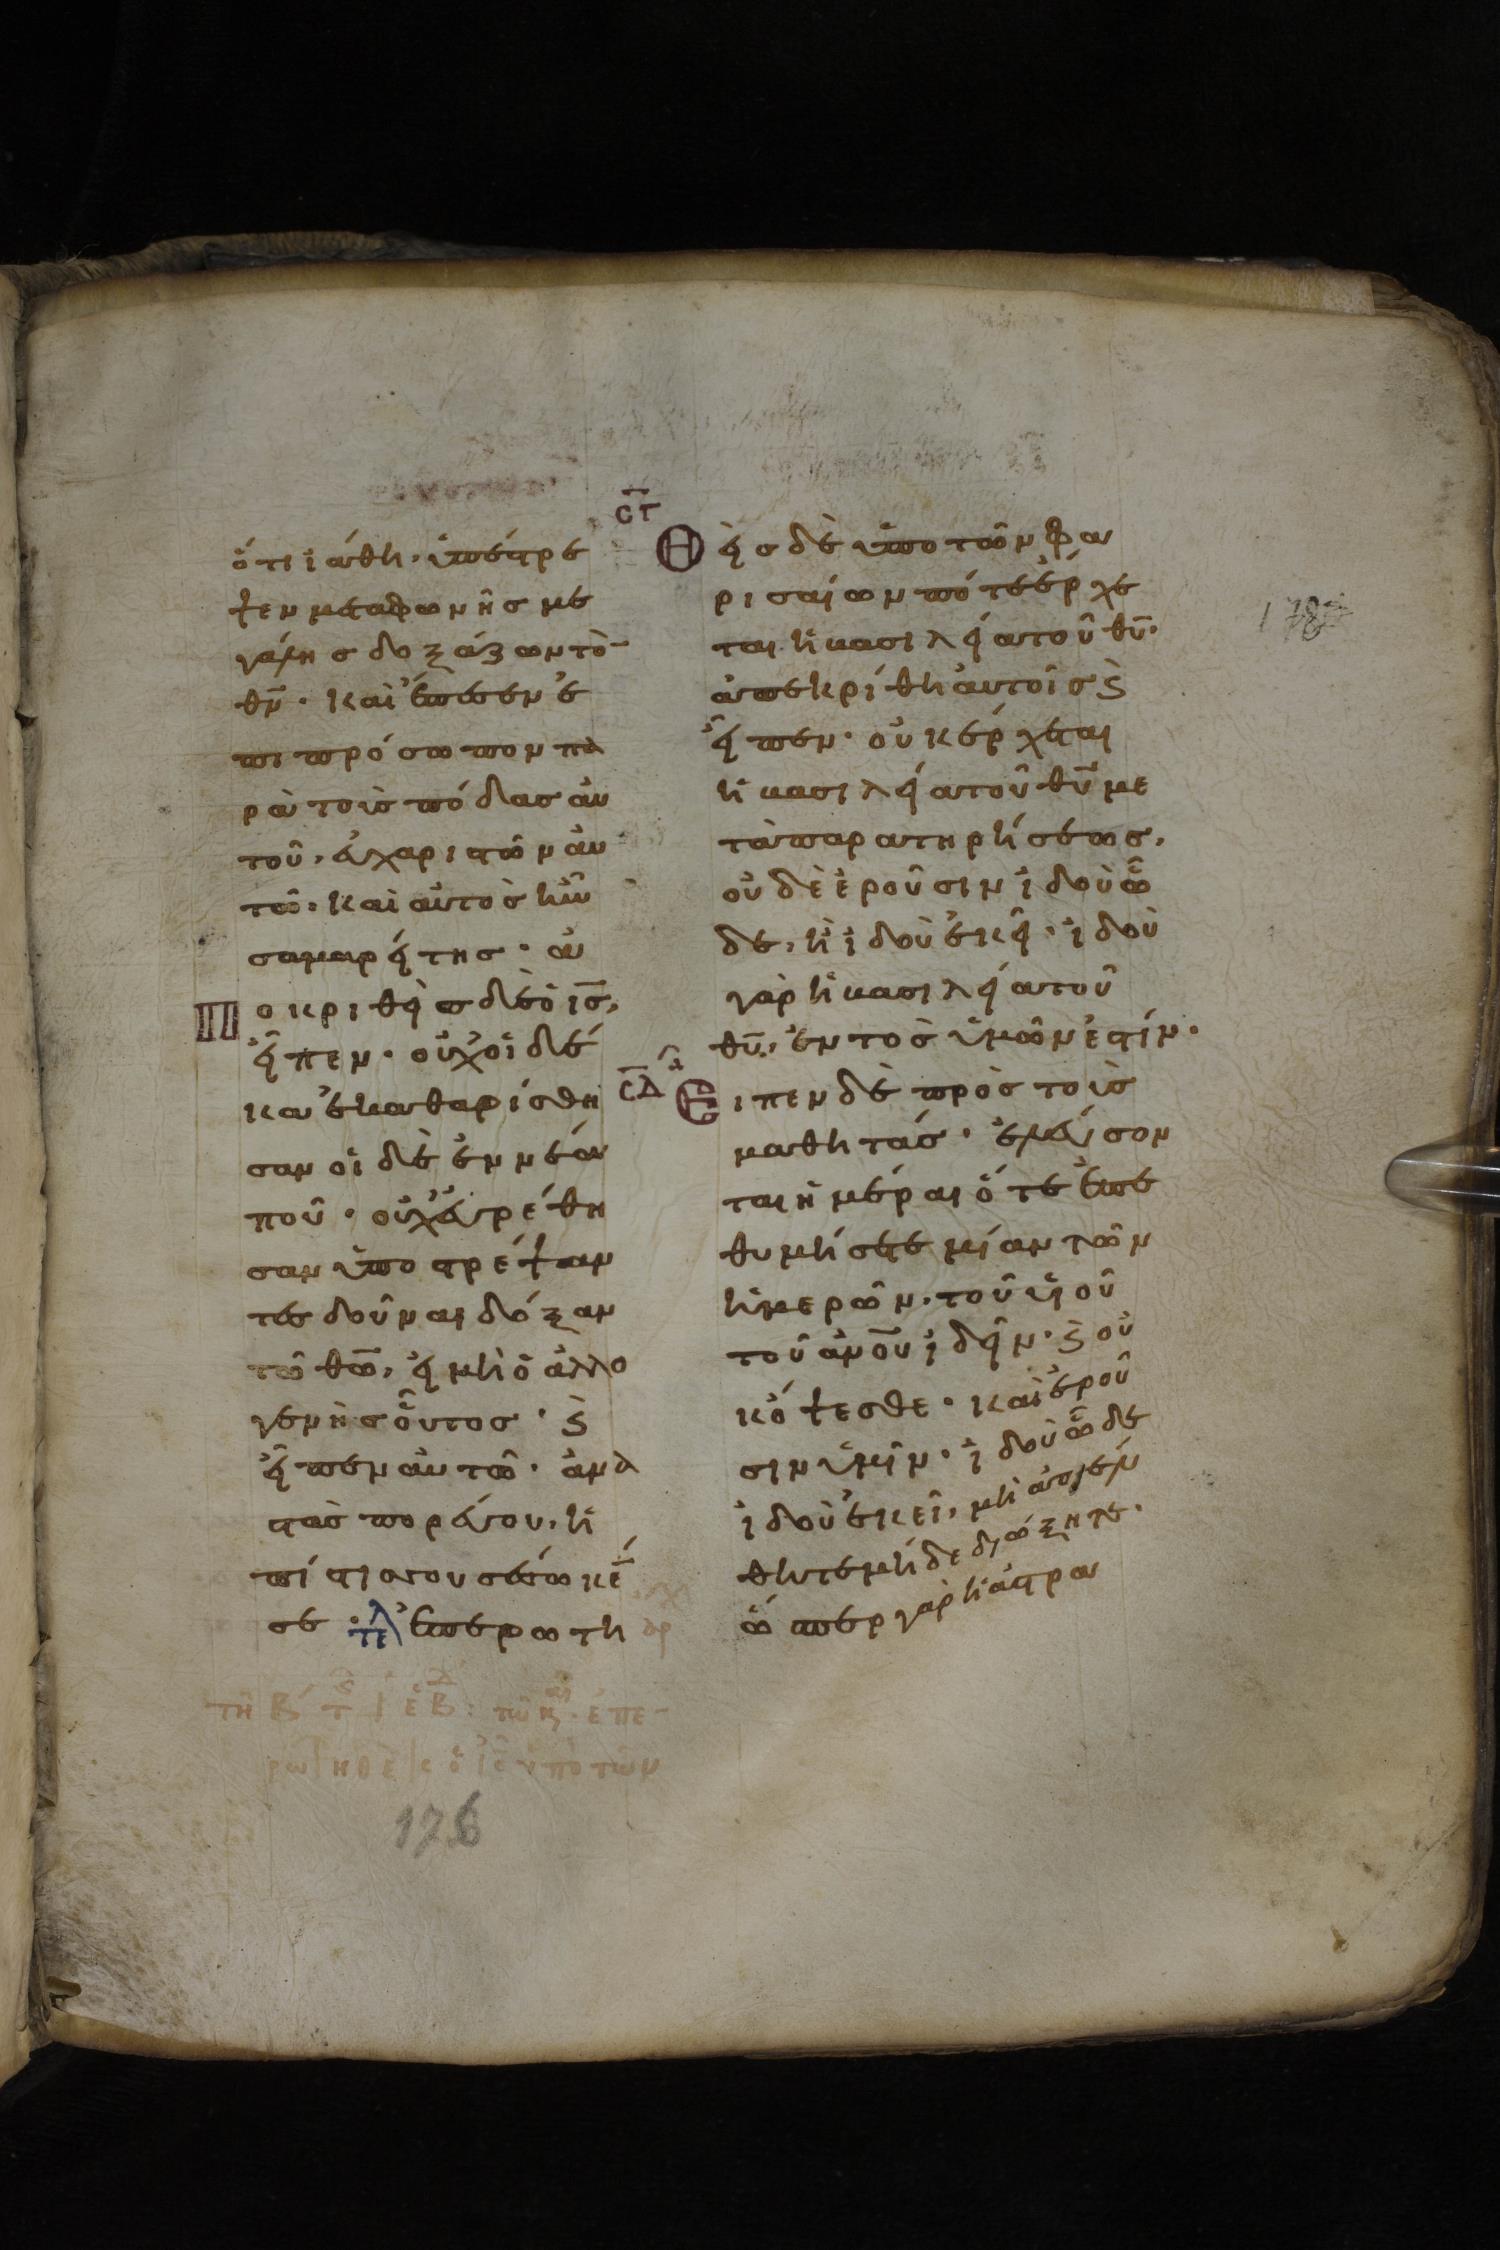 ὅτι ἰάθη, ὑπέστρε
ψεν μετὰ φωνῆς με
γάλης δοξάζων τὸ
θν̄· καὶ ἔπεσεν ἐ
πι πρόσωπον πα
ρὰ τοὺς πόδας αὐ
τοῦ, εὐχαριστῶν αὐ
τῶ, καὶ αὐτὸς ἦν
σαμαρείτης· ἀ
ποκριθεὶς δὲ ὁ ις̄,
εἶπεν· οὐχοὶ δέ
κα ἐκαθαρίσθη
σαν οἱ δὲ ἐννέα
ποῦ· οὐχ εὑρέθη
σαν ὑποστρέψαν
τες δοῦναι δόξαν
τῶ θω̄, εἰ μὴ ὁ ἀλλο
γενὴς οὗτος· ϛ̀
εἶπεν αὐτῶ· ἀνα
στὰς πορεύου, ἡ
πίστις σου σέσωκέ
σε · τε^λ ἐπερωτη
τῆ Β
ἐπε-
ρωτηθεὶς ὁ ις̄ ὑπὸ τῶν
126
Ϲ͞Γ
Θεὶς δὲ ὑπο τῶν φα
ρισαίων πότε ἔρχε
ται ἡ βασιλεία τοῦ θῡ·
ἀπεκρίθη αὐτοῖς ϛ̀
εἶπεν· οὐκ ἔρχεται
ἡ βασιλεία τοῦ θῡ με
τὰ παρατηρήσεως,
οὐδὲ ἐροῦσιν ἰδοὺ ὧ
δε, ἢ ἰδοὺ ἐκεῖ· ἰδοὺ
γὰρ ἡ βασιλεία τοῦ
θῡ, ἐντὸς ὑμῶν ἐστίν·
Ϲ͞Δ
Εἶπεν δὲ πρὸς τοὺς
μαθητάς· ἐλεύσον
ται ἡμέραι ὅτε ἐπι
θυμήσετε μίαν τῶν
ἡμερῶν, τοῦ υἱοῦ
τοῦ ἀν̄ου ἰδεῖν· ϛ̀ οὐ
κ ὄψεσθε· καὶ ἐροῦ
σιν ὑμῖν· ἰδοὺ ὧδε
ἰδοὺ ἐκεῖ, μὴ ἀπέλ
θητε μὴ δὲ διώξητε·
ὥσπερ γὰρ ἡ ἀστρα
178